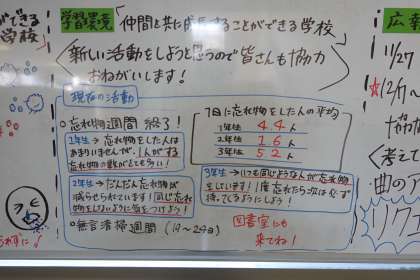 学習環境 「仲間と共に成長することができる学校」
新しい活動をしようと思うので皆さんも協力
おねがいします!
現在の活動
○忘れ物週間 終了!
1年生→忘れ物をした人は
あまりいませんが、1人がする
忘れ物の数がとても多い!
2年生→だんだん忘れ物が
減らせられています!同じ忘れ
物をしないように気をつけよう!
○無言清掃週間 (19〜25日)
1日に忘れ物をした人の平均
1年生 4.4人
2年生 1.6人
3年生 5.2人
3年生→いつも同じような人が忘れ物
をしています!1度忘れたら次は必ず
持ってくるようにしよう!
図書室にも
来てね!
ができる
学校〉
られずに♪
広報
11/27
☆12/7〜
協力
〈考えて
曲のア
リクエ